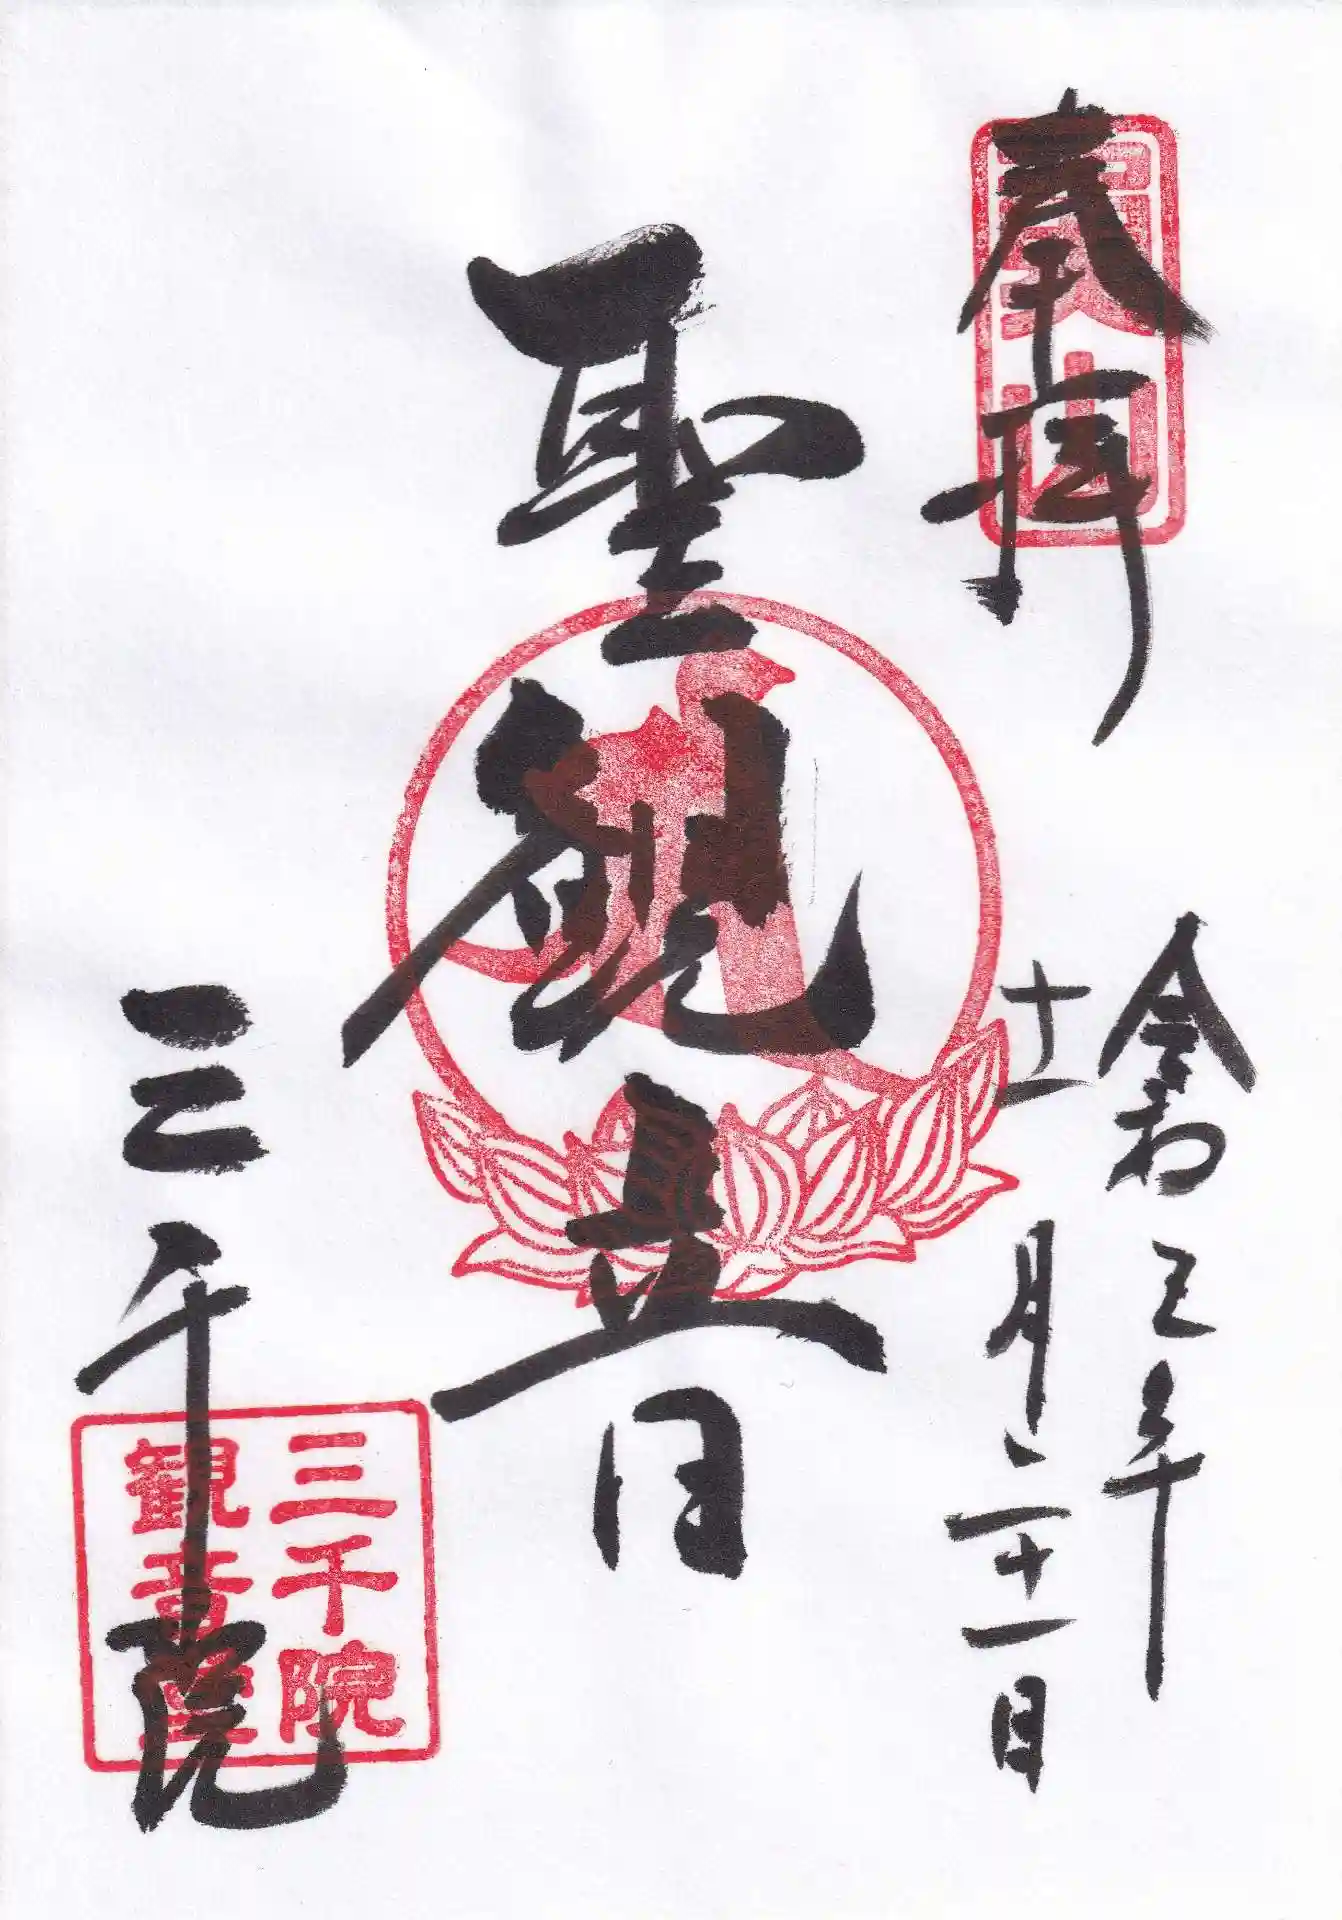 奉拝
令和三年
十一月二十一日
聖観音
三千院
三千院
観音堂